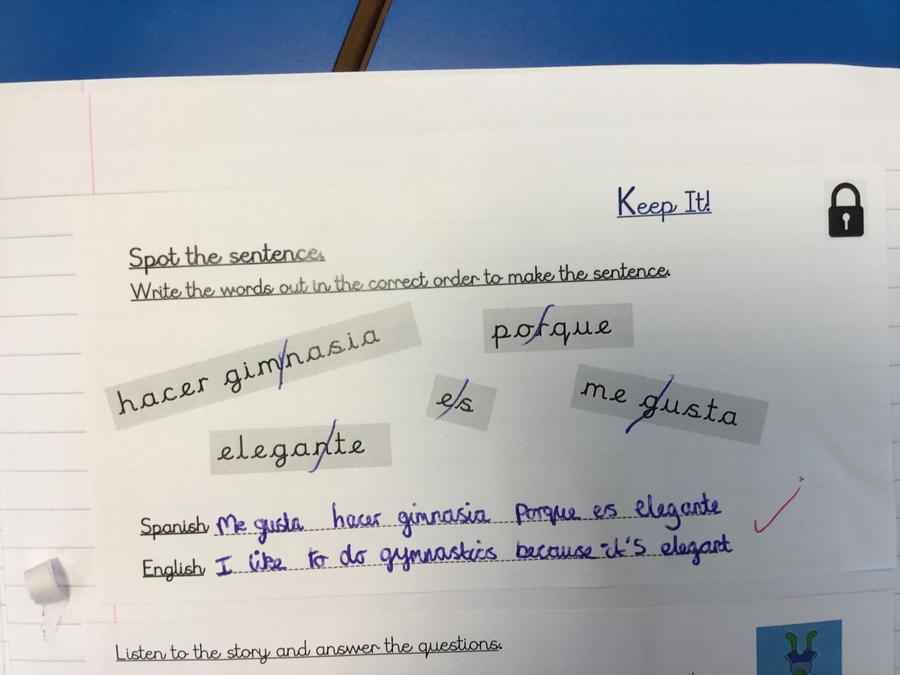 Keep It!
Spot the sentence.
Write the words out in the correct order to make the sentence.
hacer gimnasia
porque
es
me gusta
elegante
Spanish Me gusta hacer gimnasia porque es elegante
English I like to do gymnastics because it's elegant
Listen to the story and answer the questions.